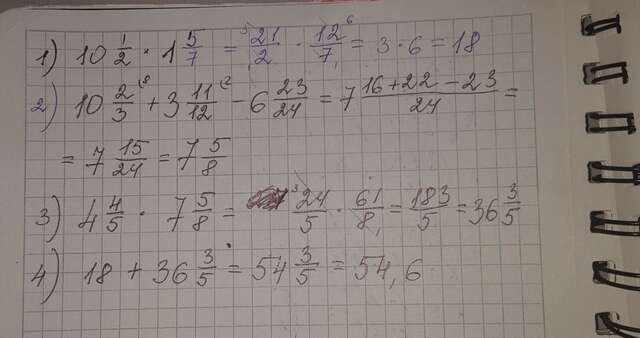 1) 10 1/2 · 1 5/7 = ³21/2 · 12⁶/7 = 3 · 6 = 18
2) 10 2/3⁽⁸ + 3 11/12⁽² - 6 23/24 = 7 16+22-23/24 =
= 7 15/24 = 7 5/8
3) 4 4/5 · 7 5/8 = ³24/5 · 61/8 = 183/5 = 36 3/5
4) 18 + 36 3/5 = 54 3/5 = 54,6